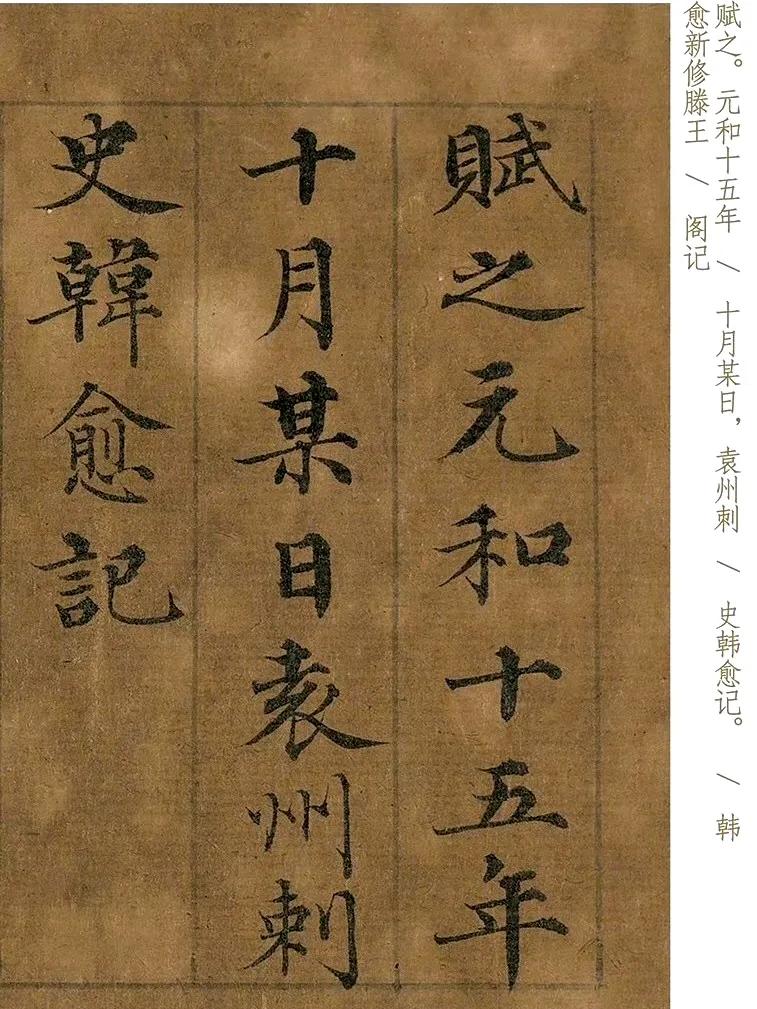 賦之元和十五年
十月某日袁州刺
史韓愈記
赋之。元和十五年 / 十月某日，袁州刺 / 史韩愈记。 / 韩
愈新修滕王 / 阁记